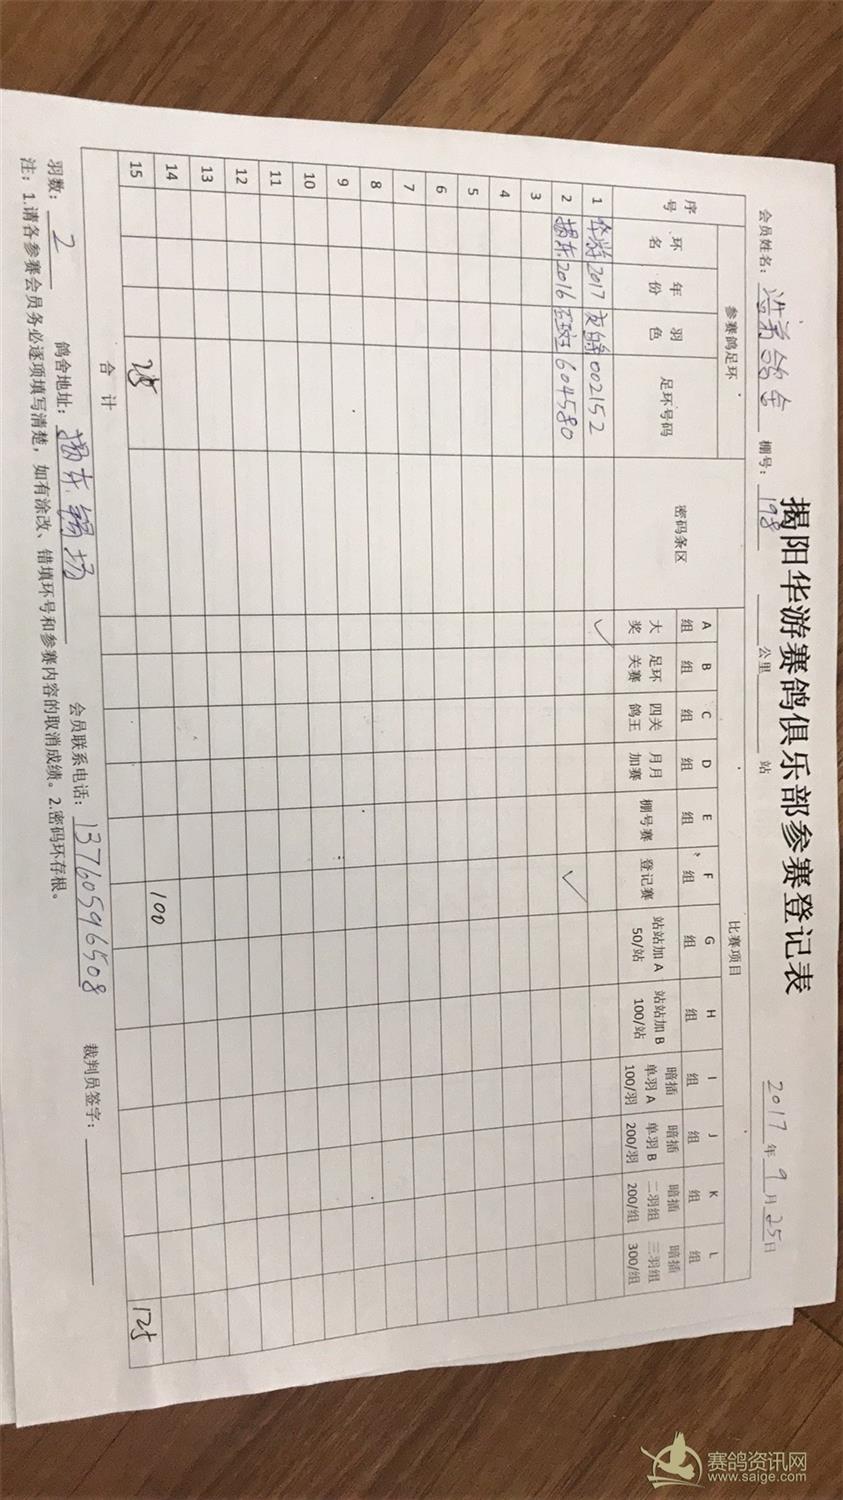 揭阳华游赛鸽俱乐部参赛登记表
会员姓名：浩弟鸽舍 棚号：198 公里 站 2017年9月25日
序号 参赛鸽足环 密码条区 比赛项目
环名 年份 羽色 足环号码
A组 B组 C组 D组 E组 F组 G组 H组 I组 J组 K组 L组
大奖 足环关赛 四关鸽王 月月加赛 棚号赛 登记赛 站站加A 50/站 站站加B 100/站 暗插单羽A 100/羽 暗插单羽B 200/羽 暗插二羽组 200/组 暗插三羽组 300/组
1 华游 2017 002152 ✓
2 揭东 2016 604580 ✓
3
4
5
6
7
8
9
10
11
12
13
14 100
15 25 125
合计
羽数：2 鸽舍地址：揭东锡场 会员联系电话：13760596508 裁判员签字：
注：1.请各参赛会员务必逐项填写清楚，如有涂改、错填环号和参赛内容的取消成绩。2.密码环存根。
赛鸽资讯网
www.saige.com